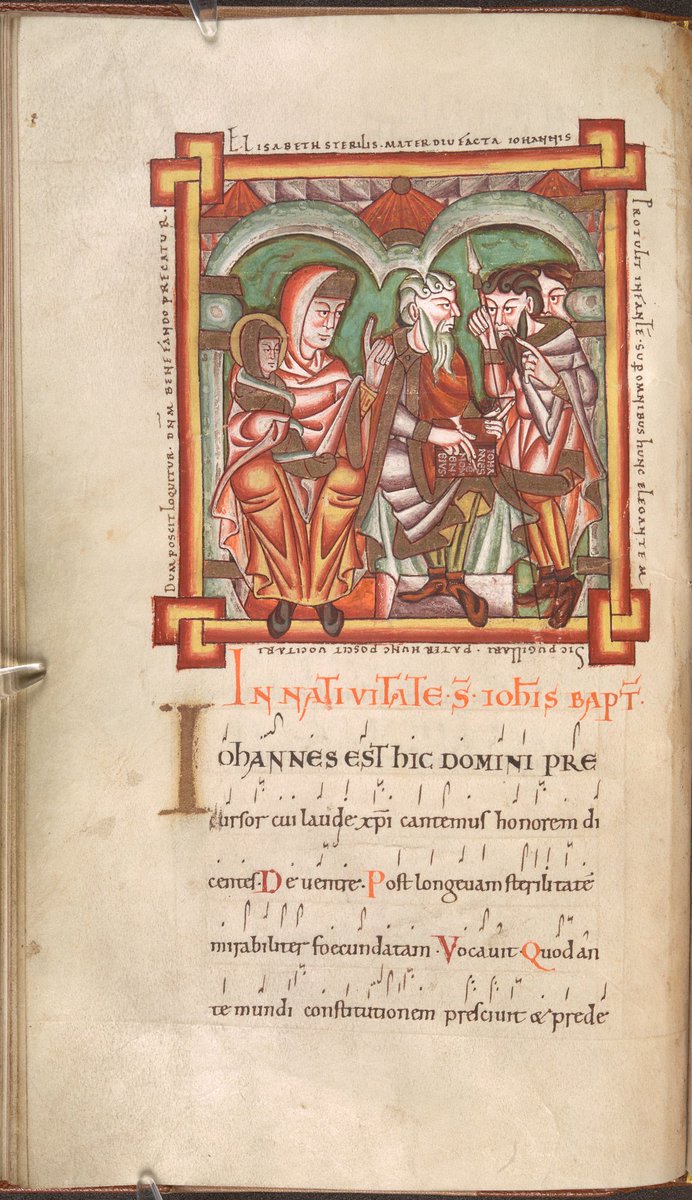 ELISABETH STERILIS · MATER DIU FACTA IOHANNIS
PROTULIT INFANTĒ · SUP OMNIBUS HUNC ELEGANTEM
SIC PUGILLARI · PATER HUNC POSCIT VOCITARI
DUM POSCIT LOQUITUR · DNM BENEFANDO PRECATUR ·
IOHA
NNES
NOM
EN
EIUS
IN NATIVITATE · S̄ · IOHIS BAPT̄ ·
IOHANNES EST HIC DOMINI PRE
cursor cui laude xpi cantemus honorem di
centes · De uentre · Post longeuam sterilitatē
mirabiliter foecundatam · Vocauit · Quod an
te mundi constitutionem presciuit & prede